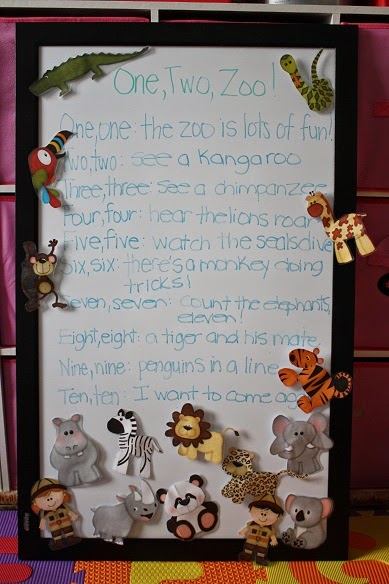 One, Two, Zoo!
One, one: the zoo is lots of fun!
Two, two: see a Kangaroo
Three, three: see a chimpanzee
Four, four: hear the lions roar
Five, five: watch the seals dive
Six, six: there's a monkey doing
tricks!
Seven, seven: count the elephants,
eleven!
Eight, eight: a tiger and his mate
Nine, nine: penguins in a line
Ten, ten: I want to come